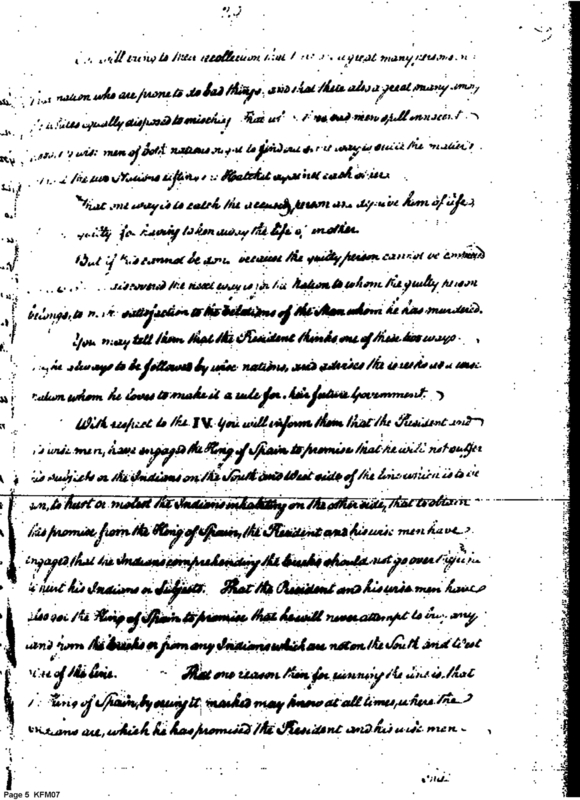 will bring to their recollection that there are a great many persons in
nation who are prone to do bad things, and that there also a great many among
equally disposed to mischief. That bad men spill innocent
wise men of both nations ought to find out some way to quiet the matter
the two Nations lifting the Hatchet against each other
That one way is to catch the accused person and deprive him of life,
guilty for having taken away the life of another.
But if this cannot be done because the guilty person cannot be
discovered the next way is for the Nation to whom the guilty person
belongs, to make satisfaction to the Relations of the Man whom he has murdered.
You may tell them that the President thinks one of these two ways
always to be followed by wise nations, and advises the Creeks as a wise
nation whom he loves to make it a rule for their future Government.
With respect to the IV. You will inform them that the President and
his wise men, have engaged the King of Spain to promise that he will not suffer
his subjects or the Indians on the South and West side of the line which is to be
run, to hurt or molest the Indians inhabiting on the other side, that to obtain
this promise from the King of Spain, the President and his wise men have
engaged that the Indians comprehending the Creeks should not go over
hurt his Indians or Subjects. That the President and his wise men have
also got the King of Spain to promise that he will never attempt to buy any
land from the Creeks or from any Indians which are not on the South and West
side of the line. That one reason then for running the line is, that
the King of Spain, by seeing it marked may know at all times, where the
Indians are, which he has promised the President and his wise men
Page 5 KFM07